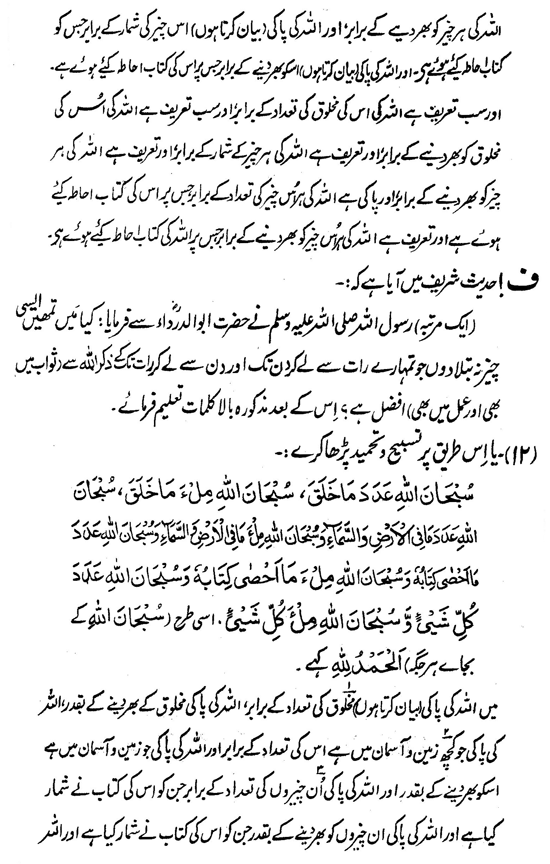 اللہ کی ہر چیز کو بھر دینے کے برابر، اور اللہ کی پاکی (بیان کرتا ہوں) اس چیز کی شمار کے برابر جس کو
کتاب احاطہ کیئے ہوئے ہی۔ اور اللہ کی پاکی (بیان کرتا ہوں) اسکو بھر دینے کے برابر جس پر اس کی کتاب احاطہ کیئے ہوئے ہے۔
اور سب تعریف ہے اللہ کی اس کی مخلوق کی تعداد کے برابر، اور سب تعریف ہے اللہ کی اُس کی
مخلوق کو بھر دینے کے برابر، اور تعریف ہے اللہ کی ہر چیز کے شمار کے برابر، اور تعریف ہے اللہ کی ہر
چیز کو بھر دینے کے برابر، اور پاکی ہے اللہ کی ہر اُس چیز کی تعداد کے برابر جس پر اس کی کتاب احاطہ کیئے
ہوئے ہے اور تعریف ہے اللہ کی ہر اُس چیز کو بھر دینے کے برابر جس پر اللہ کی کتاب احاطہ کیئے ہوئے ہی۔
ف! حدیث شریف میں آیا ہے کہ:-
(ایک مرتبہ) رسول اللہ صلی اللہ علیہ وسلم نے حضرت ابوالدرداءؓ سے فرمایا: کیا میں تمھیں ایسی
چیز نہ بتلا دوں جو تمہارے رات سے لے کر دن تک اور دن سے لے کر رات تک کے ذکر اللہ سے (ثواب میں
بھی اور عمل میں بھی) افضل ہے؟ اِس کے بعد مذکورہ بالا کلمات تعلیم فرمائے۔
(۱۲)۔ یا اِس طریق پر تسبیح و تحمید پڑھا کرے:-
سُبْحَانَ اللهِ عَدَدَ مَا خَلَقَ، سُبْحَانَ اللهِ مِلْءَ مَا خَلَقَ، سُبْحَانَ
اللهِ عَدَدَ مَا فِی الْاَرْضِ وَالسَّمَاءِ وَسُبْحَانَ اللهِ مِلْءَ مَا فِی الْاَرْضِ وَالسَّمَاءِ وَسُبْحَانَ اللهِ عَدَدَ
مَا اَحْصٰی کِتَابُهٗ وَسُبْحَانَ اللهِ مِلْءَ مَا اَحْصٰی کِتَابُهٗ وَسُبْحَانَ اللهِ عَدَدَ
کُلِّ شَیْئٍ وَّ سُبْحَانَ اللهِ مِلْءَ کُلِّ شَیْئٍ۔ اسی طرح (سُبْحَانَ اللهِ کے
بجائے ہر جگہ) اَلْحَمْدُ لِلهِ کہے۔
میں اللہ کی پاکی (بیان کرتا ہوں) مخلوق کی تعداد کے برابر، اللہ کی پاکی مخلوق کے بھر دینے کے بقدر، اللہ
کی پاکی جو کچھ زمین و آسمان میں ہے اس کی تعداد کے برابر اور اللہ کی پاکی جو زمین و آسمان میں ہے
اسکو بھر دینے کے بقدر اور اللہ کی پاکی اُن چیزوں کی تعداد کے برابر جن کو اس کی کتاب نے شمار
کیا ہے اور اللہ کی پاکی ان چیزوں کو بھر دینے کے بقدر جن کو اس کی کتاب نے شمار کیا ہے اور اللہ